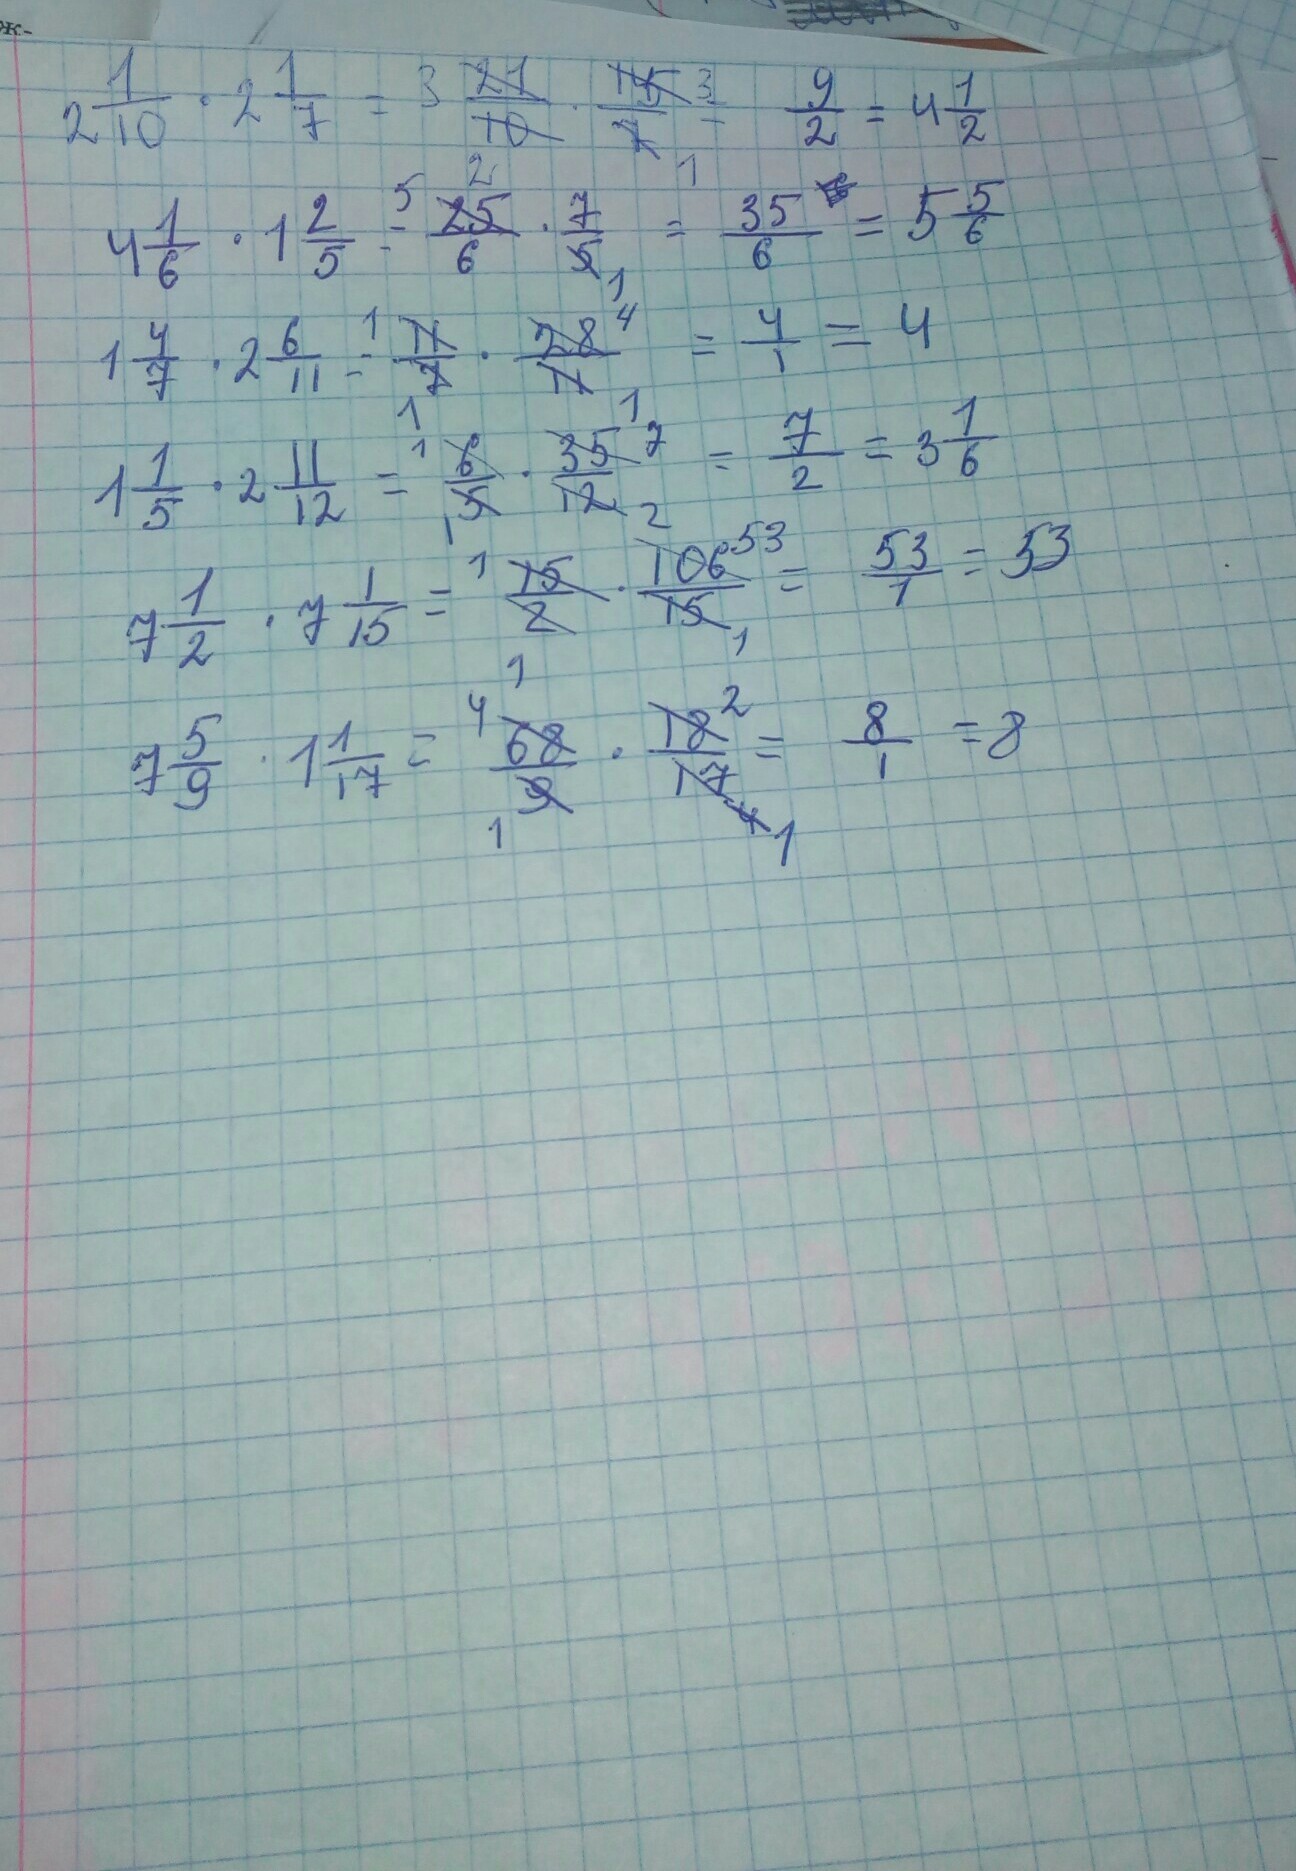 ж-
2 1/10 · 2 1/7 = 3 21/10 2 · 15/7 3 1 = 9/2 = 4 1/2
4 1/6 · 1 2/5 = 5 25/6 · 7/5 1 = 35/6 = 5 5/6
1 4/7 · 2 6/11 = 1 11/7 1 · 28/11 4 1 = 4/1 = 4
1 1/5 · 2 11/12 = 1 6/5 1 · 35/12 7 2 = 7/2 = 3 1/6
7 1/2 · 7 1/15 = 1 15/2 1 · 106/15 53 1 = 53/1 = 53
7 5/9 · 1 1/17 = 4 68/9 1 · 18/17 2 1 = 8/1 = 8